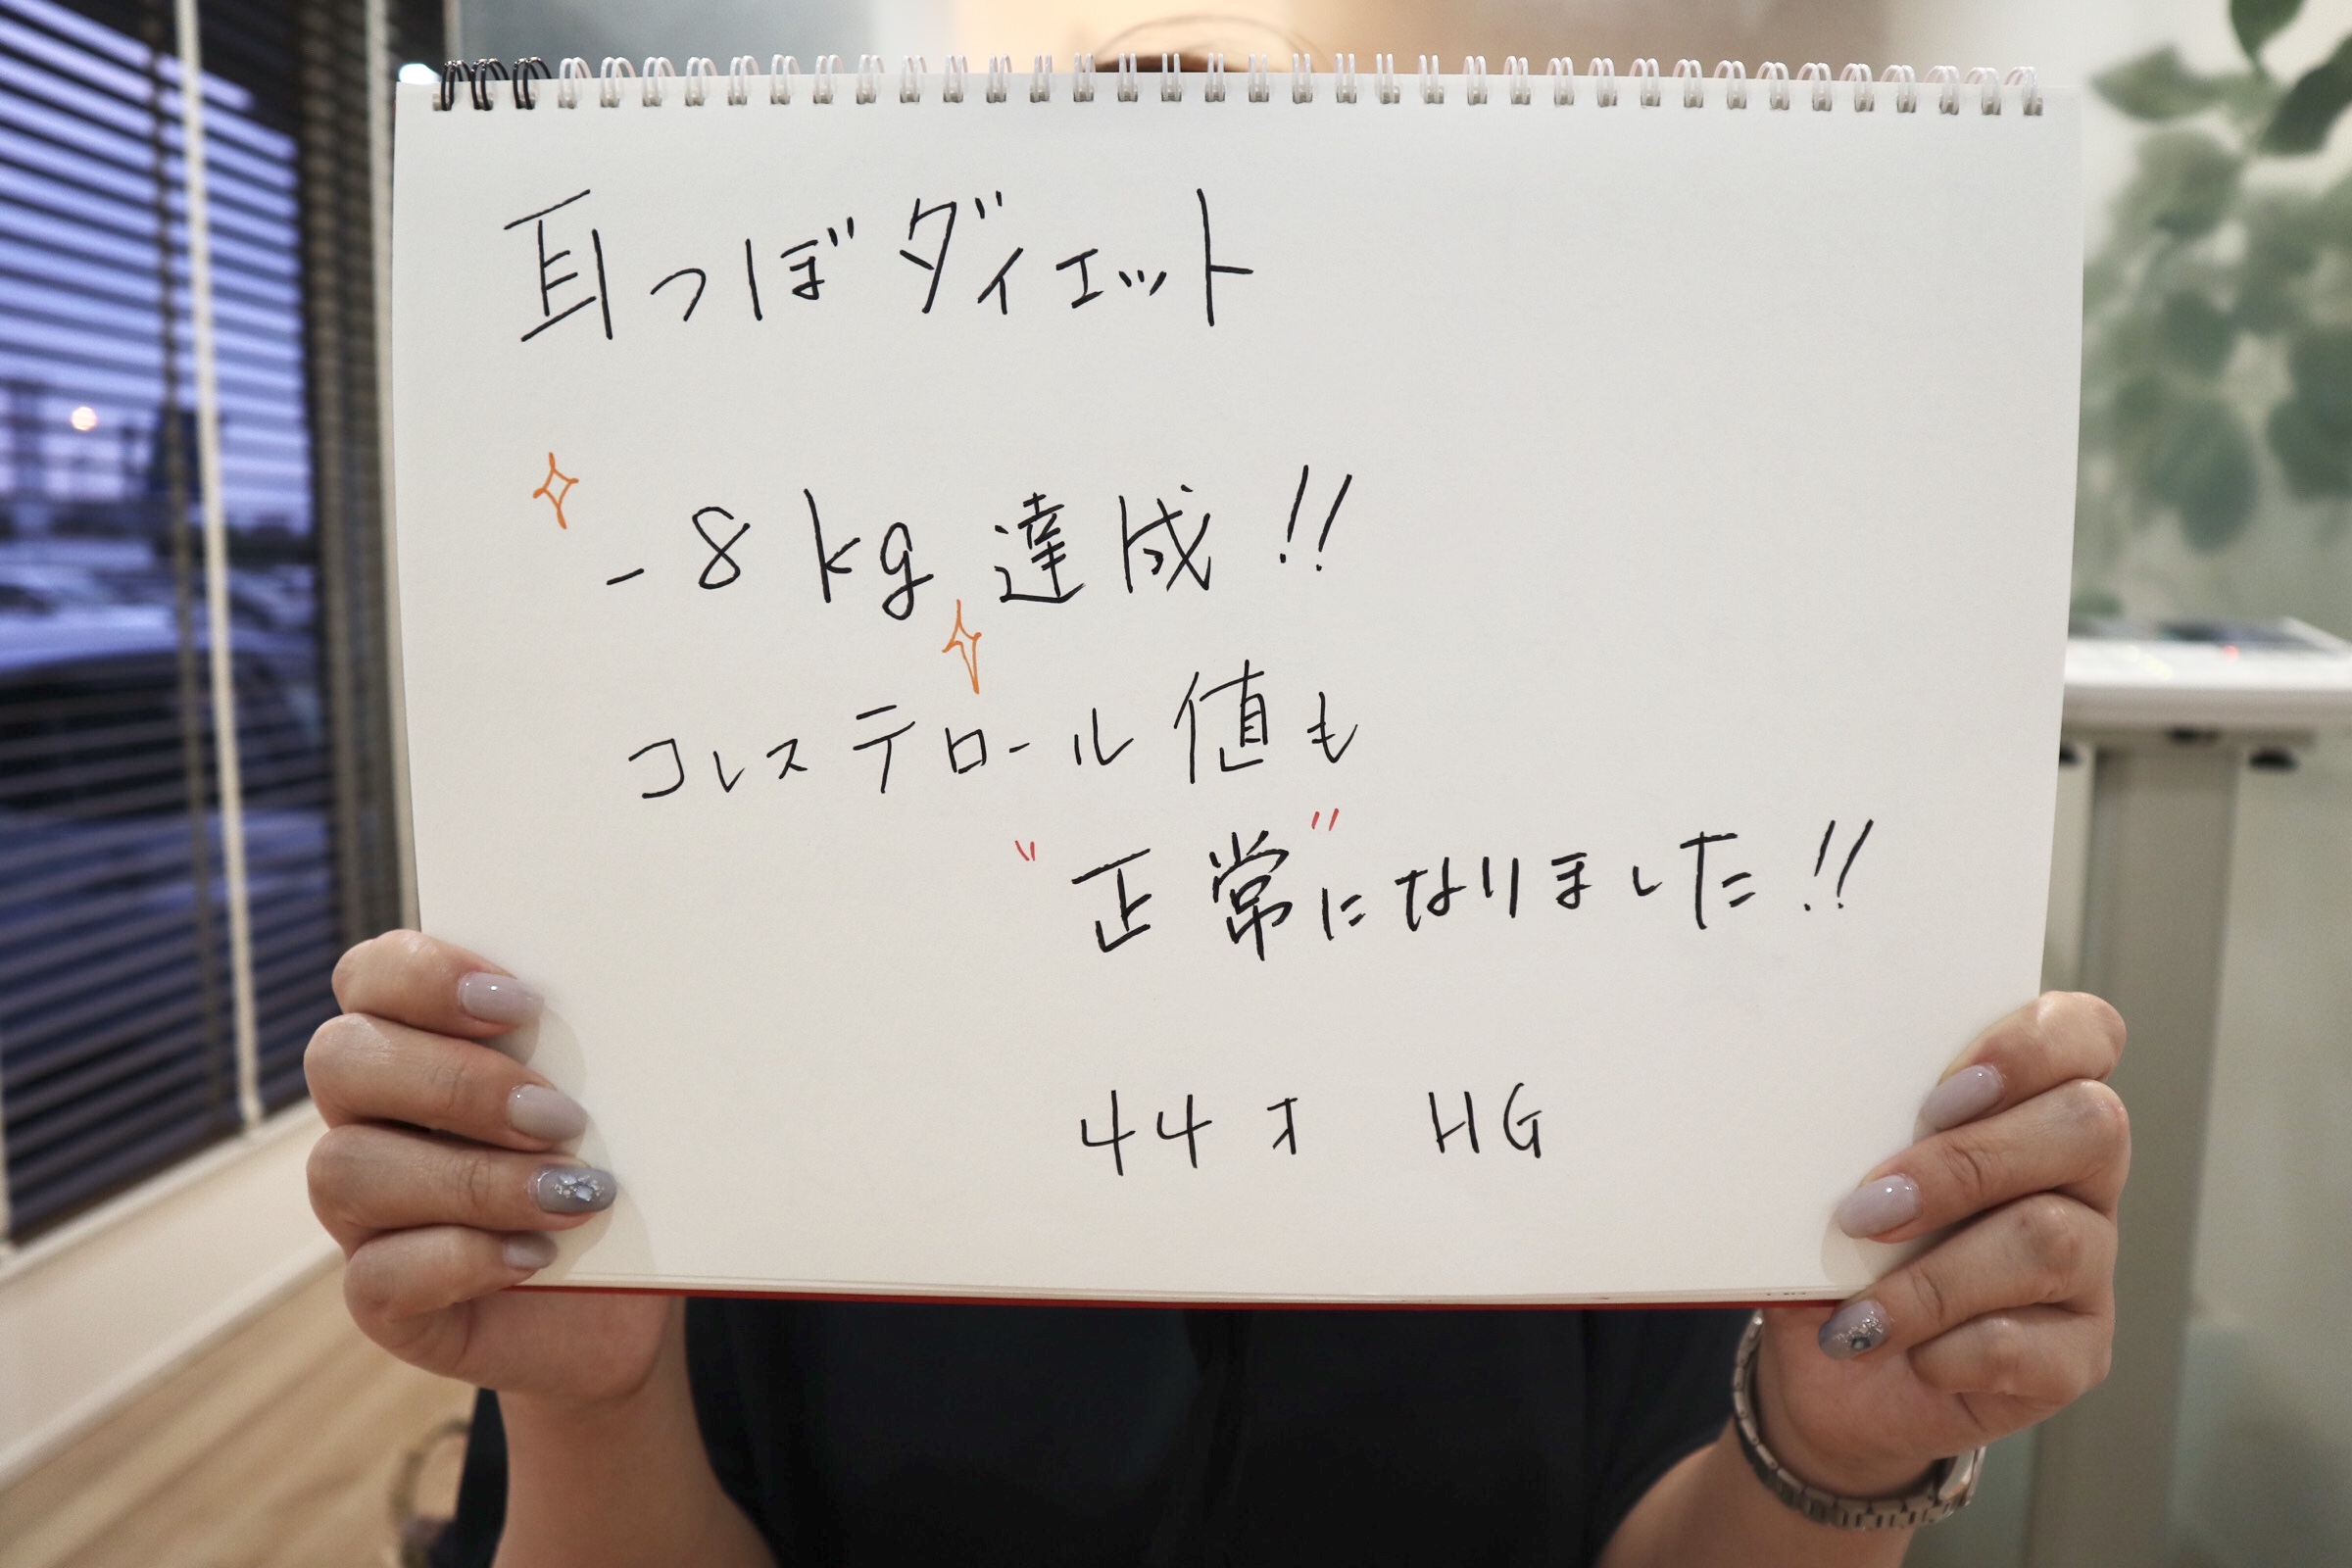 耳つぼダイエット
-8kg達成!!
コレステロール値も
"正常"になりました!!
44才 HG